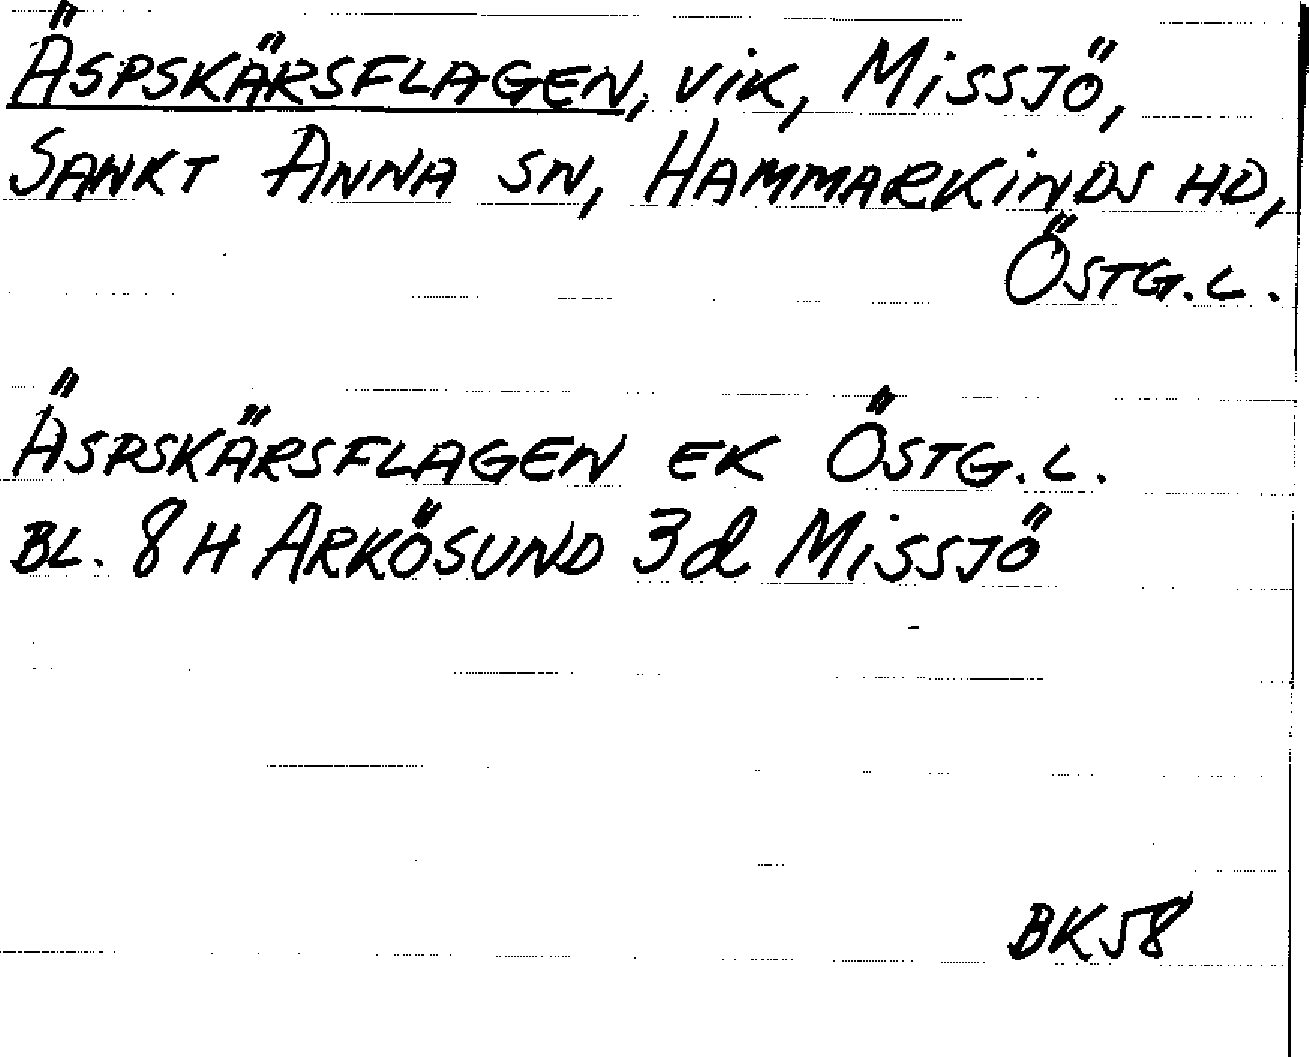 ÄSPSKÄRSFLAGEN, VIK, MISSJÖ,
SANKT ANNA SN, HAMMARKINDS HD,
ÖSTG.L.
ÄSPSKÄRSFLAGEN EK ÖSTG.L.
BL. 8 H ARKÖSUND 3d MISSJÖ
BK58